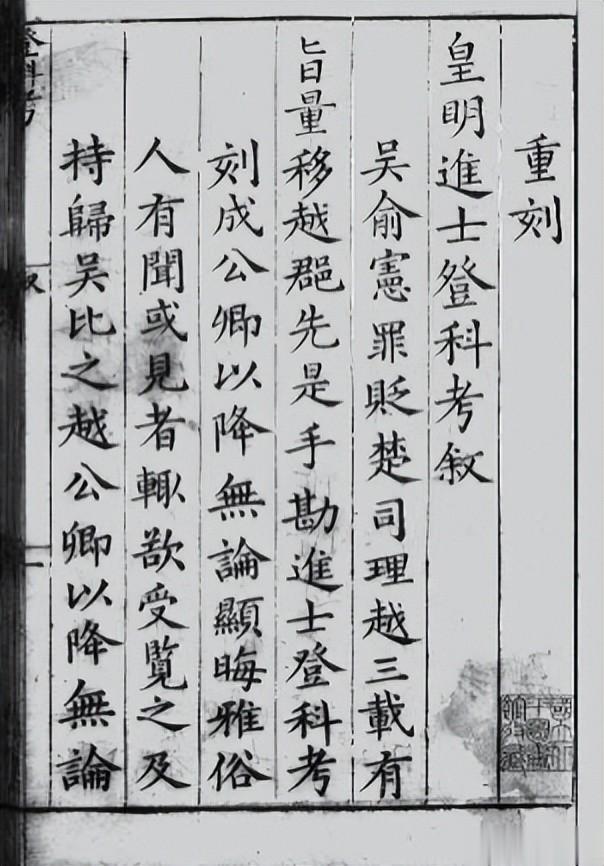 重刻
皇明進士登科考叙
吴俞憲罪貶楚司理越三載有
旨量移越郡先是手勘進士登科考
刻成公卿以降無論顯晦雅俗
人有聞或見者輙欲受覧之及
持歸吴比之越公卿以降無論
登科考